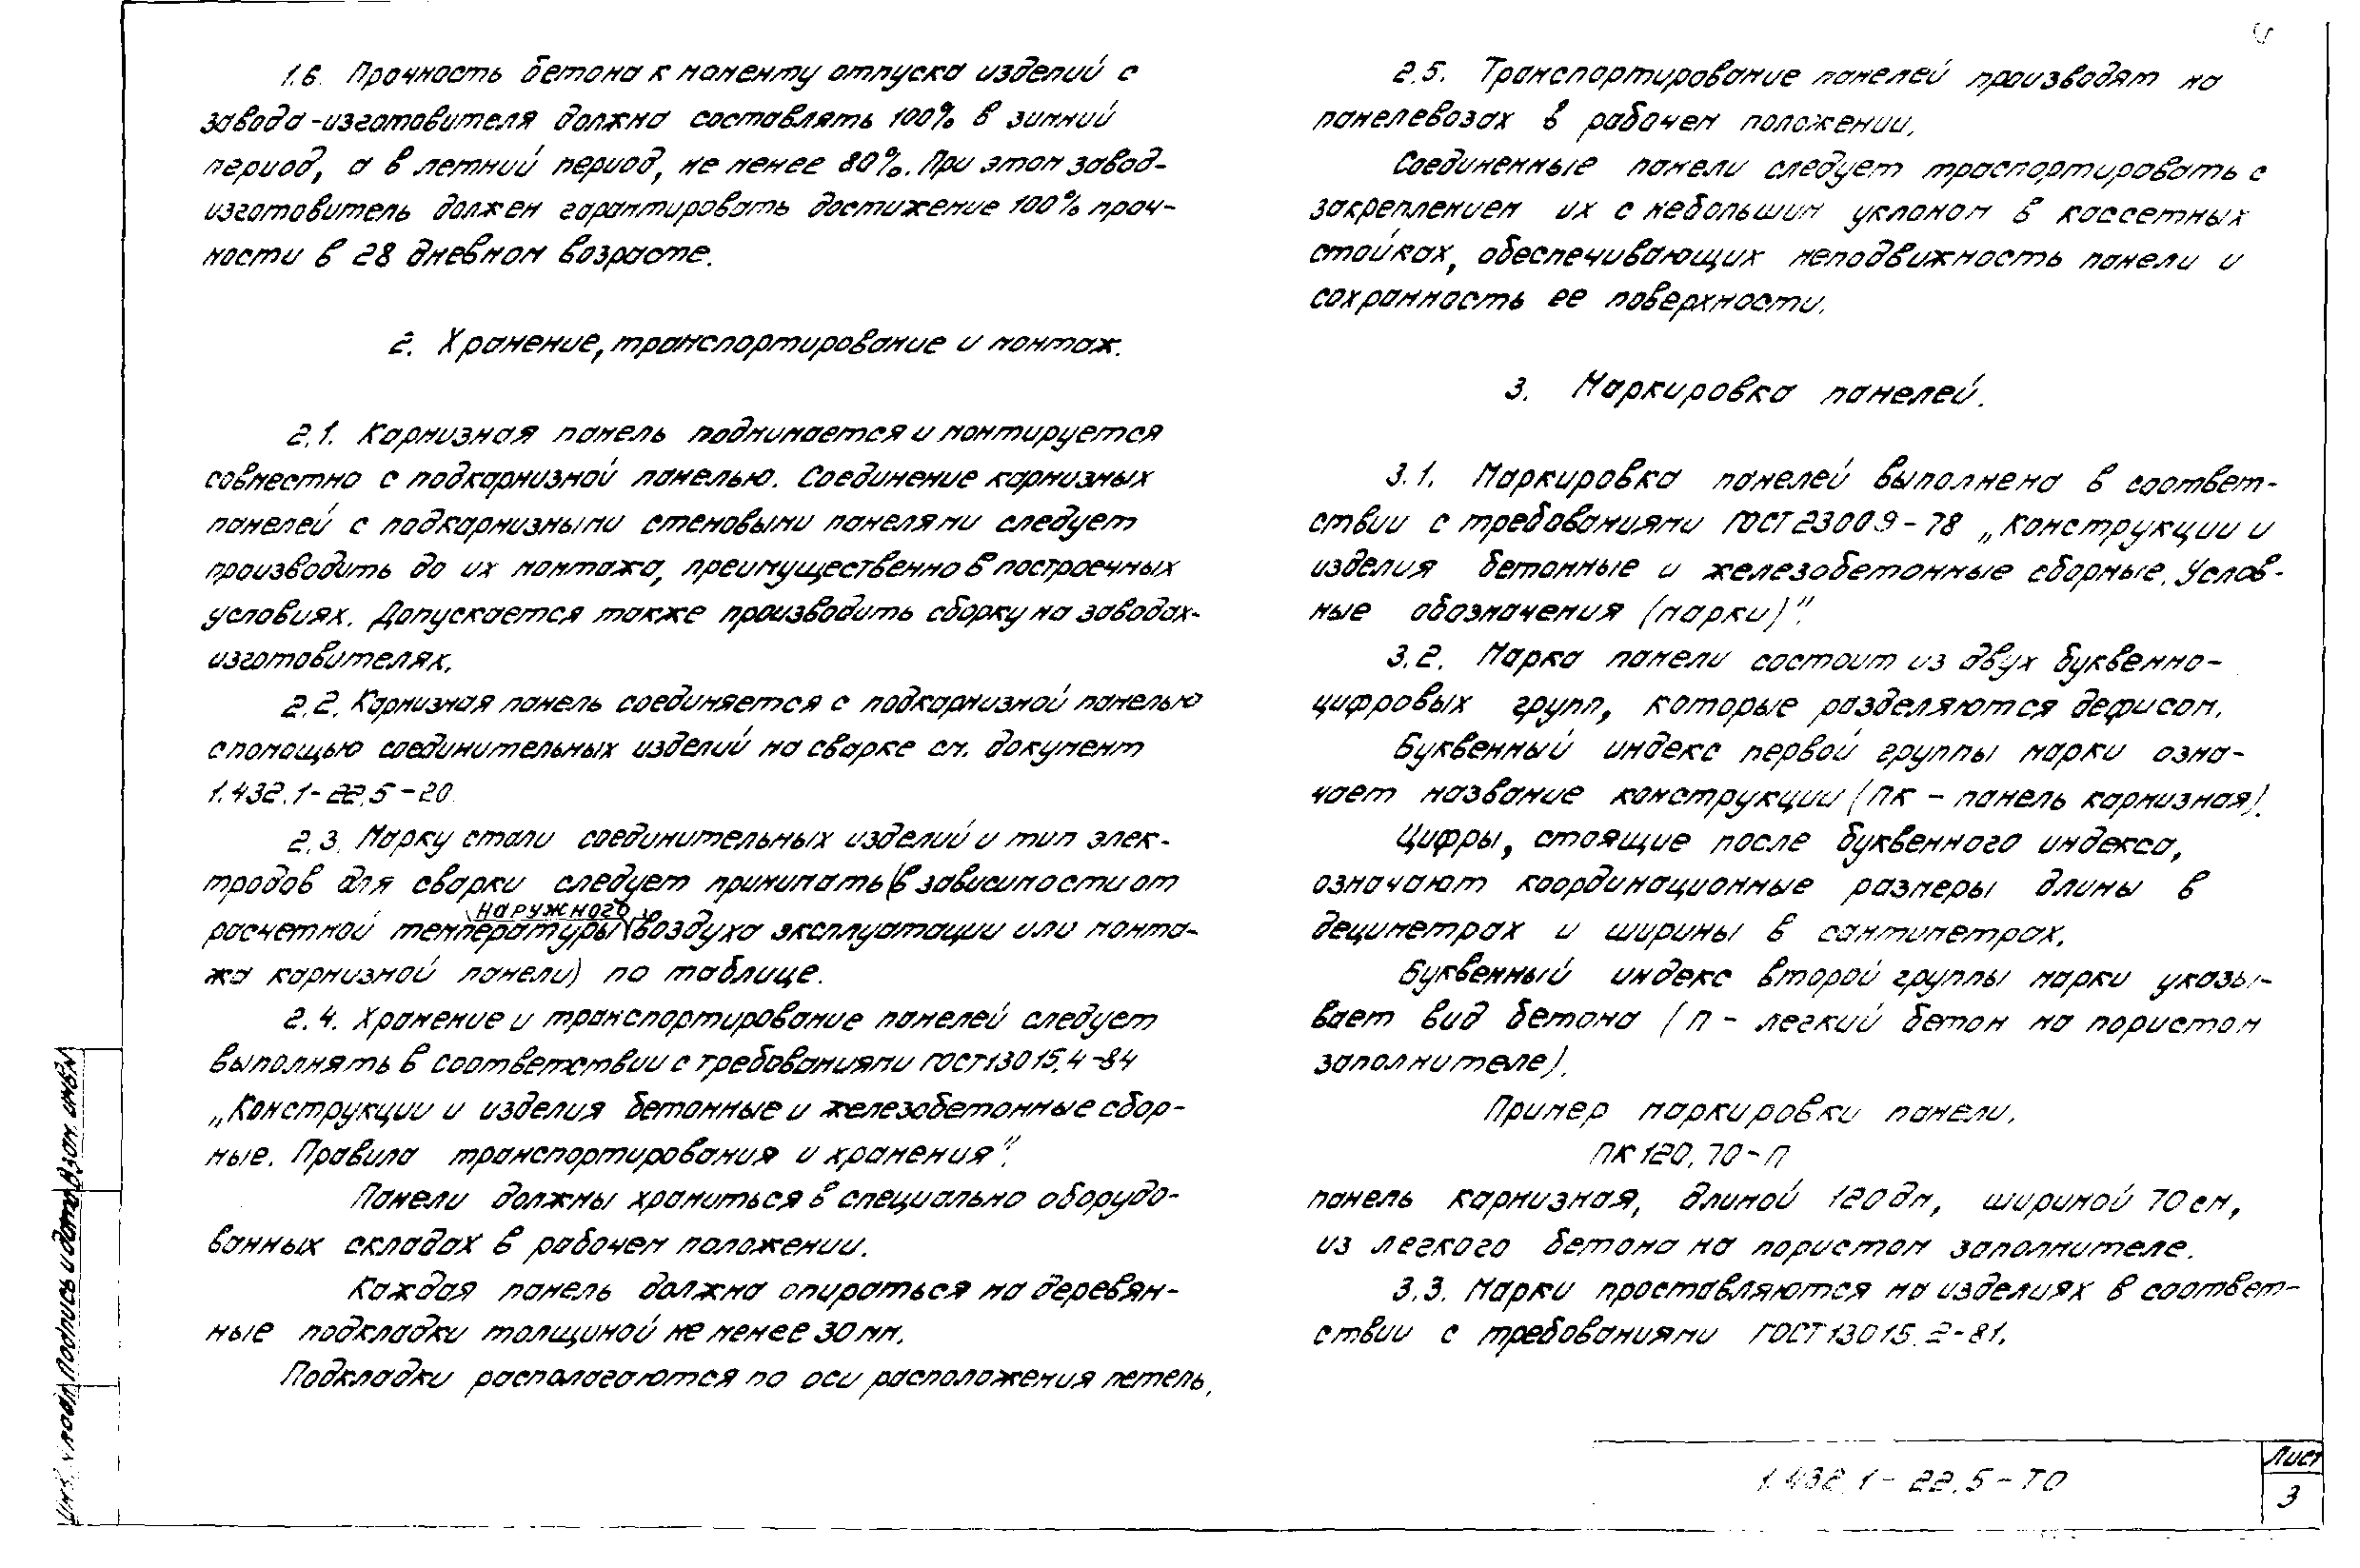 1.6. Прочность бетона к моменту отпуска изделий с
завода-изготовителя должна составлять 100% в зимний
период, а в летний период, не менее 80%. При этом завод-
изготовитель должен гарантировать достижение 100% проч-
ности в 28 дневном возрасте.
2. Хранение, транспортирование и монтаж.
2.1. Карнизная панель поднимается и монтируется
совместно с подкарнизной панелью. Соединение карнизных
панелей с подкарнизными стеновыми панелями следует
производить до их монтажа, преимущественно в построечных
условиях. Допускается также производить сборку на заводах-
изготовителях.
2.2. Карнизная панель соединяется с подкарнизной панелью
с помощью соединительных изделий на сварке см. документ
1.432.1-22.5-20.
2.3. Марку стали соединительных изделий и тип элек-
тродов для сварки следует принимать (в зависимости от
наружного
расчетной температуры воздуха эксплуатации или монта-
жа карнизной панели) по таблице.
2.4. Хранение и транспортирование панелей следует
выполнять в соответствии с требованиями ГОСТ 13015.4-84
„Конструкции и изделия бетонные и железобетонные сбор-
ные. Правила транспортирования и хранения".
Панели должны храниться в специально оборудо-
ванных складах в рабочем положении.
Каждая панель должна опираться на деревян-
ные подкладки толщиной не менее 30 мм.
Подкладки располагаются по оси расположения петель.
2.5. Транспортирование панелей производят на
панелевозах в рабочем положении.
Соединенные панели следует траспортировать с
закреплением их с небольшим уклоном в кассетных
стойках, обеспечивающих неподвижность панели и
сохранность ее поверхности.
3. Маркировка панелей.
3.1. Маркировка панелей выполнена в соответ-
ствии с требованиями ГОСТ 23009-78 „Конструкции и
изделия бетонные и железобетонные сборные. Услов-
ные обозначения (марки)".
3.2. Марка панели состоит из двух буквенно-
цифровых групп, которые разделяются дефисом.
Буквенный индекс первой группы марки озна-
чает название конструкции (ПК - панель карнизная).
Цифры, стоящие после буквенного индекса,
означают координационные размеры длины в
дециметрах и ширины в сантиметрах.
Буквенный индекс второй группы марки указы-
вает вид бетона (П - легкий бетон на пористом
заполнителе).
Пример маркировки панели.
ПК 120.70-П
панель карнизная, длиной 120 дм, шириной 70 см,
из легкого бетона на пористом заполнителе.
3.3. Марки проставляются на изделиях в соответ-
ствии с требованиями ГОСТ 13015.2-81.
1.432.1-22.5-ТО
Лист
3
Подпись и дата
Взам. инв. №